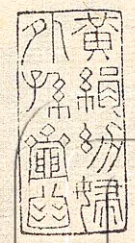 黃絹幼婦
外孫齏臼